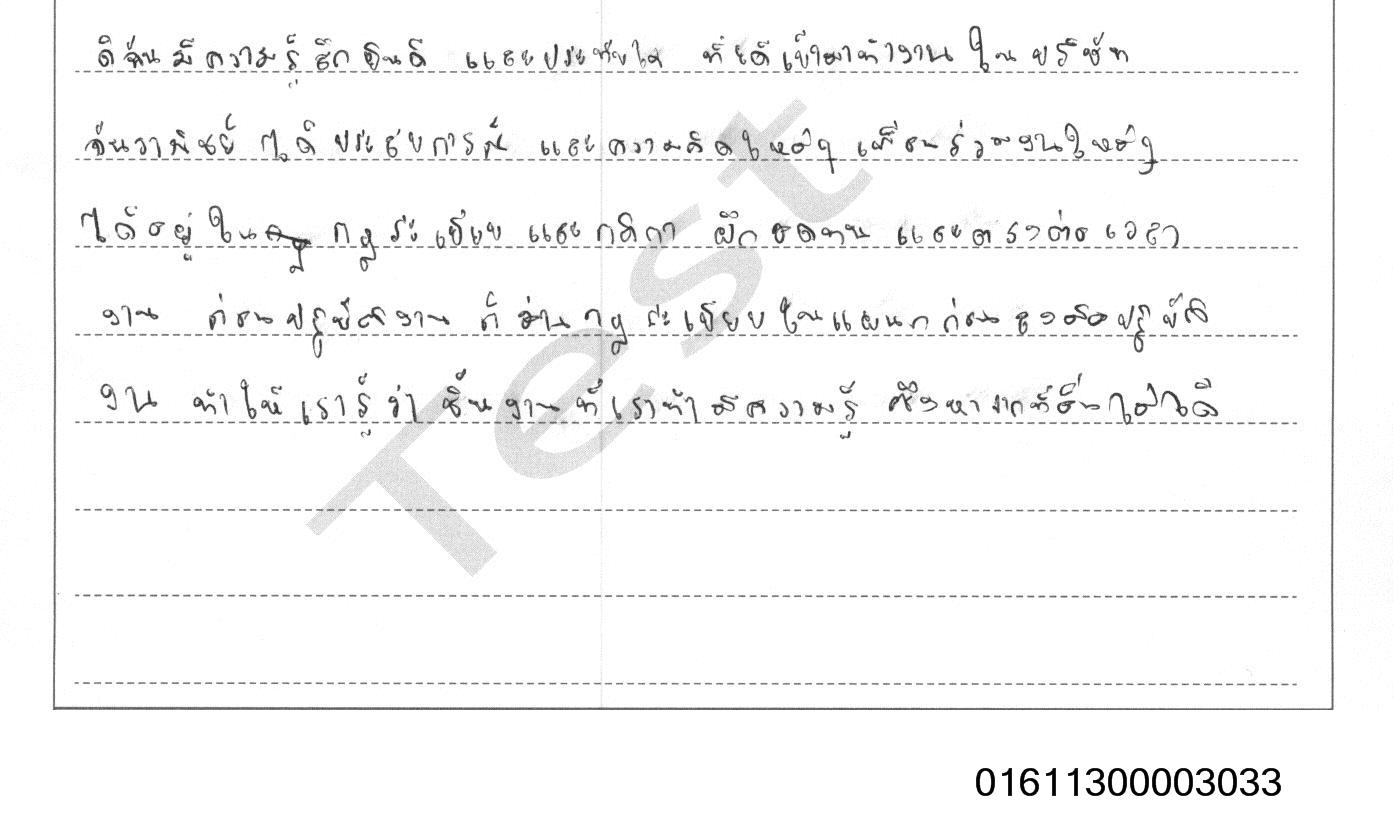 ดิฉันมีความรู้สึกยินดี และประทับใจ ที่ได้เข้ามาทำงานในบริษัท
ได้ประสบการณ์ และความคิดใหม่ๆ เพื่อนร่วมงานใหม่ๆ
ได้อยู่ใน กฎระเบียบ และกติกา ฝึกอดทน และตรงต่อเวลา
งาน ก่อนปฏิบัติงาน ก็อ่านกฎระเบียบในแผนกก่อนลงมือปฏิบัติ
งาน ทำให้เรารู้ว่าชิ้นงานที่เราทำมีความรู้ ซึ่งหาจากที่อื่นไม่ได้
Test
01611300003033